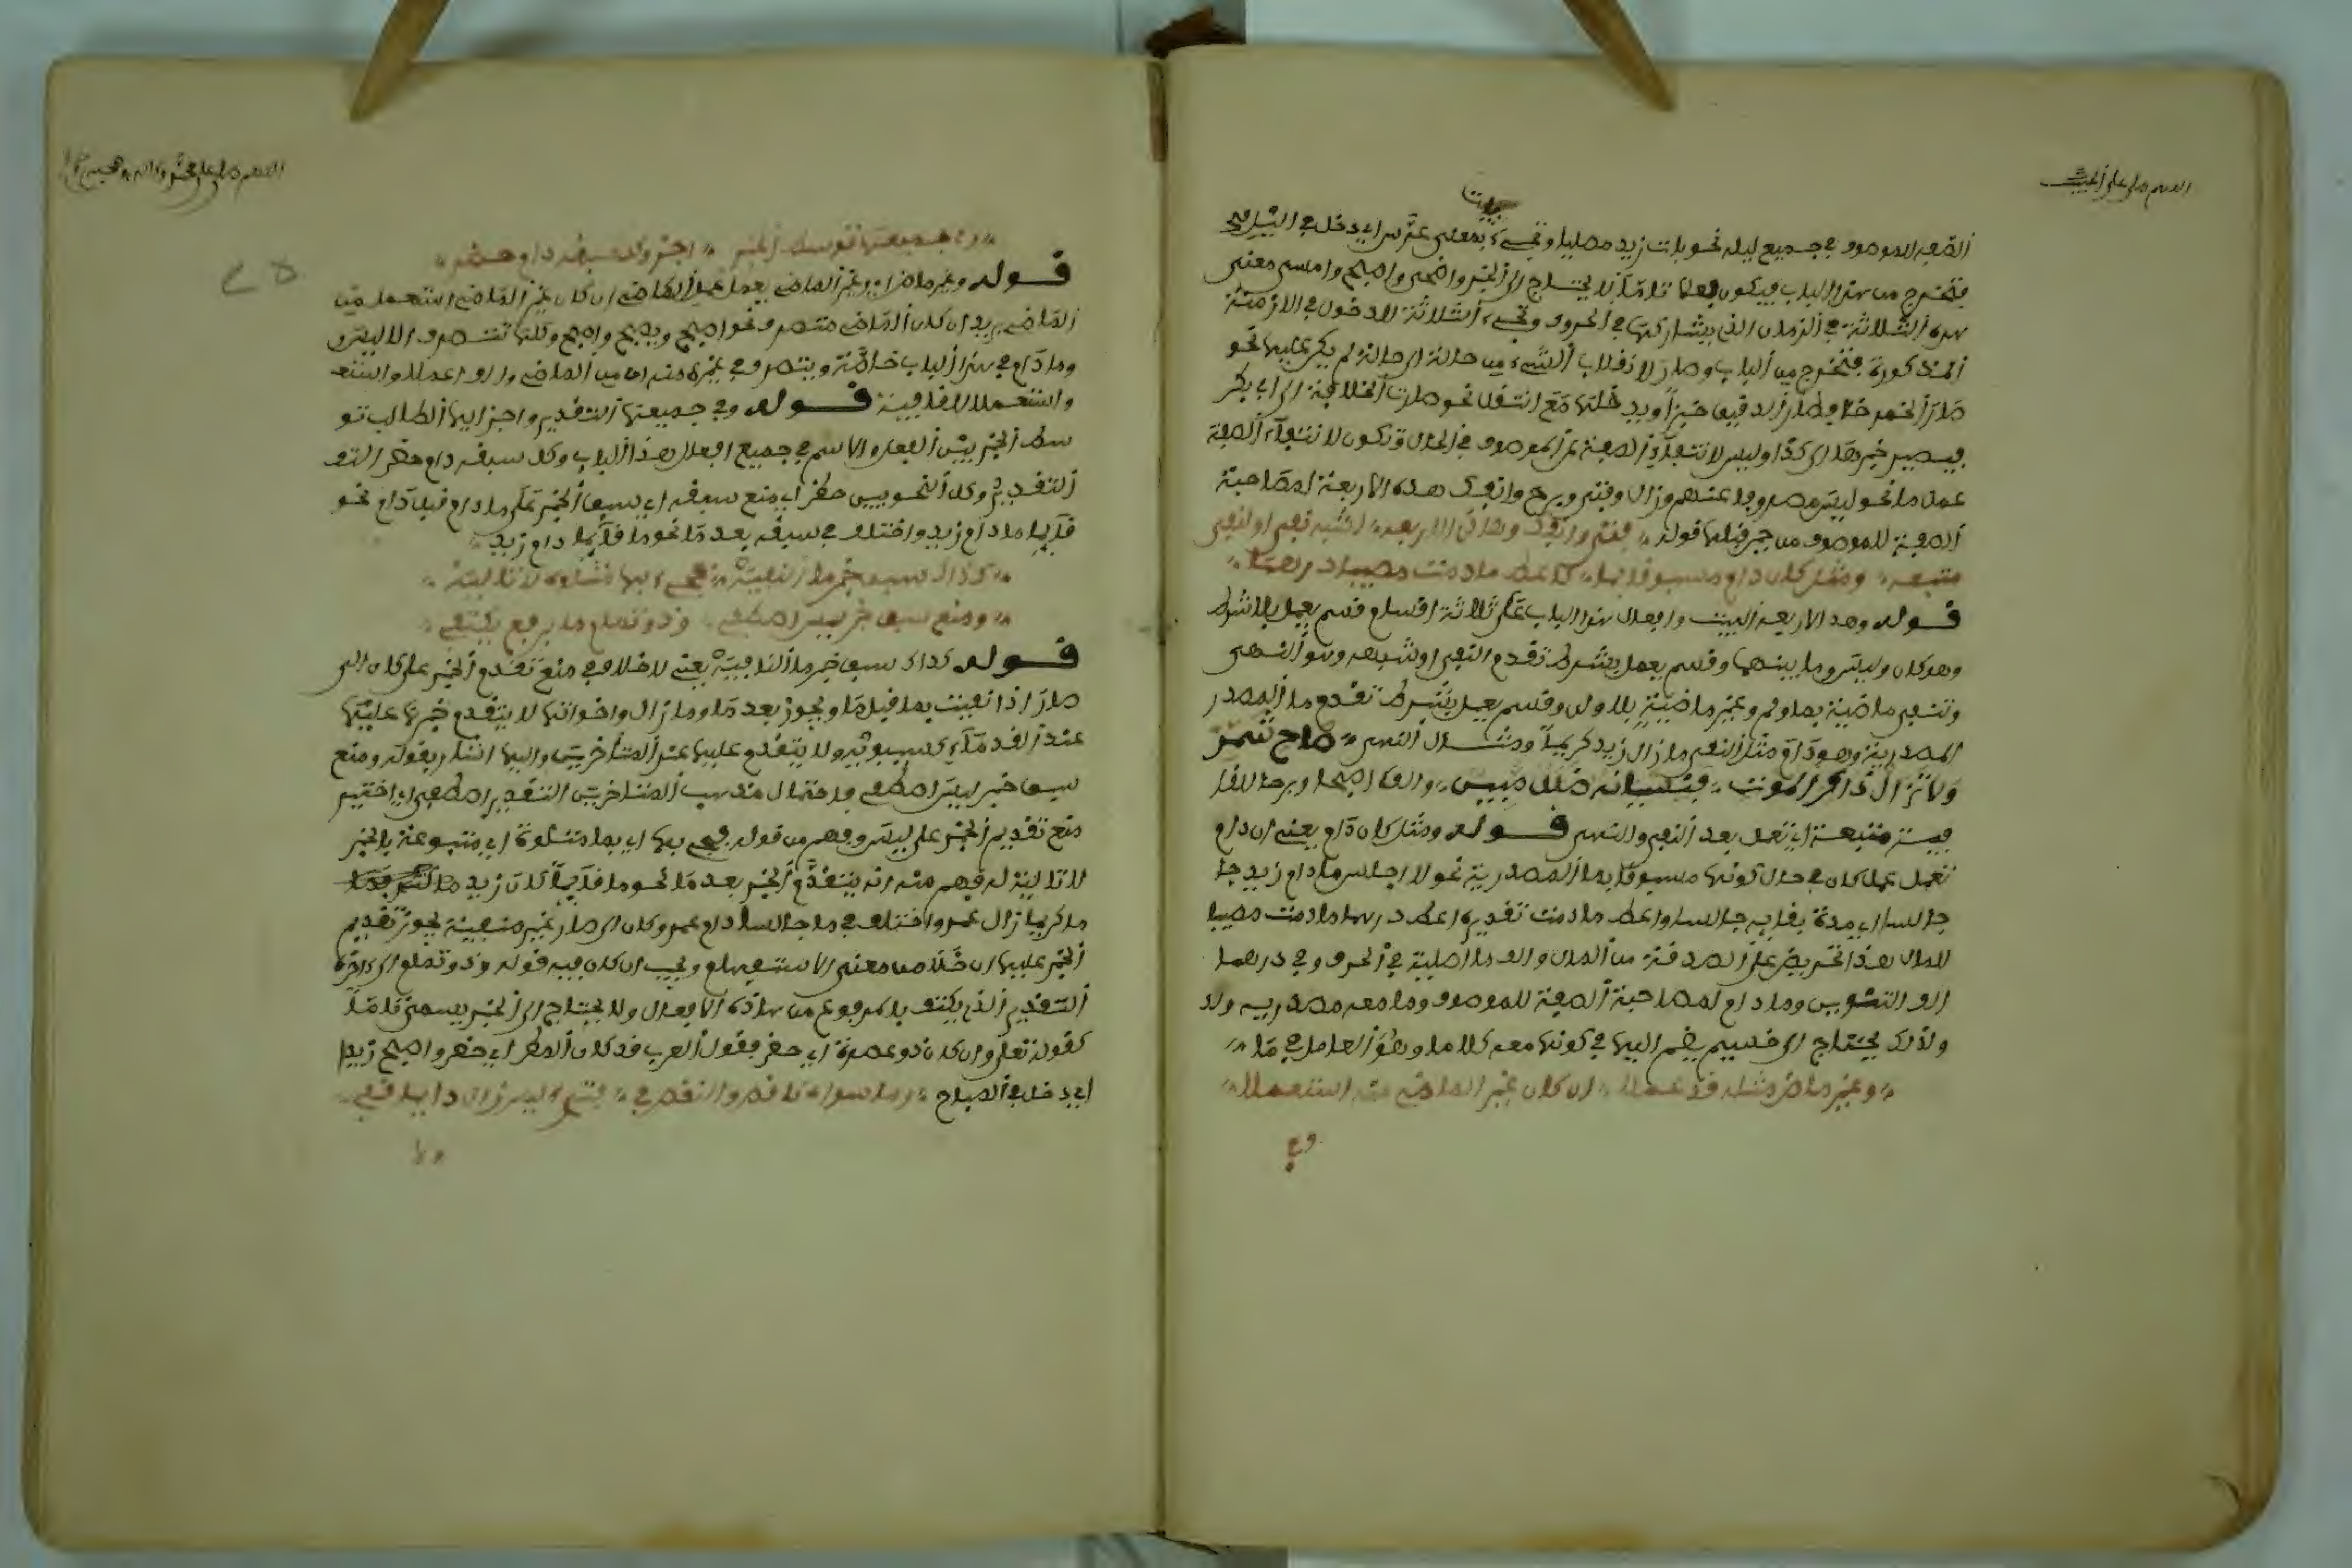 اللهم صل على الحبيب
باتت
الصفة للموصوف في جميع ليله نحو بات زيد مصليا وتجيء بمعنى عرس اي دخل في الليل
فتخرج من هذا الباب فيكون فعلا تاما لا يحتاج الى الخبر واضحى واصبح وامسى معنى
هذه الثلاثة في الزمان الذي يشاركها في الحروف وتجيء الثلاثة للدخول في الازمنة
المذكورة فتخرج من الباب وصار لانقلاب الشيء من حالة الى حالة لم يكن عليها نحو
صار الخمر خلا وصار الدقيق خبزا ويدخلها مع انتقل نحو صارت الخلافة الى ابي بكر
فيصير خبرها الى كذا وليس لانتفاء الصفة عن الموصوف في الحال وتكون لانتفاء الصفة
عن ما نحو ليس مصروفا عنهم وزال وفتئ وبرح وانفك هذه الاربعة لمصاحبة
الصفة للموصوف من قوله فتئ وانفك وهذي الاربعه لشبه نفي او لنفي
متبعه ومثل كان دام مسبوقا بما كاعط ما دمت مصيبا درهما
قوله وهذ الاربعة البيت وافعال هذا الباب على ثلاثة اقسام قسم يعمل بلا شرط
وهو كان وليس وما بينهما وقسم يعمل بشرط تقدم النفي او شبهه وهو النهي
وتنفى ماضية بما ولم وغير ماضية بلا ولن وقسم يعمل بشرط تقدم ما المصدر
المصدرية وهو دام مثال النفي ما زال زيد كريما ومثال النهي صاح شمر
ولا تزال ذاكر الموت فنسيانه ضلال مبين
متبعة اي تعمل بعد النفي والنهي قوله ومثل كان دام يعني ان دام
تعمل عمل كان في حال كونها مسبوقا بما المصدرية نحو لا اجلس ما دام زيد جا
جالسا اي مدة بقايه جالسا واعط ما دمت تقديره اعط درهما ما دمت مصيبا
للمال هذا تحريض على الصدقة من المال والف ما اصلية في الحرف وفي درهما
الف التنوين وما دام لمصاحبة الصفة للموصوف وما معه مصدريه ولذ
ولذلك يحتاج الى قسيم يضم اليها في كونها معه كلاما وهو العامل في ما
وغير ماض مثله قد عملا ان كان غير الماض منه استعملا
وفي
اللهم صل على محمد وءاله وصحبه
وفي جميعها توسط الخبر اجز وكل سبقه دام حظر
قوله وغير ماض اي وغير الماضي يعمل عمل الماضي ان كان غير الماضي استعمل من
الماضي يريد ان كان الماضي متصرف نحو اصبح ويصبح واصبح وكلها تتصرف الا ليس
وما دام في هذا الباب خاصة ويتصرف في غيره منه اي من الماضي والف اعملا واستع
واستعملا لاقافية قوله وفي جميعها التقدير واجز ايها الطالب تو
سط الخبر بين الفعل والاسم في جميع افعال هذا الباب وكل سبقه دام حظر التقـ
التقدير وكل النحويين حظر اي منع سبقه اي سبق الخبر على ما دام قبل دام نحو
قايما ما دام زيد واختلف في سبقه بعد ما نحو ما قايما دام زيد
كذاك سبق خبر ما النافيه فجيء بها متلوة لا تاليه
ومنع سبق خبر ليس اصطفي وذو تمام ما برفع يكتفي
قوله كذاك سبق خبر ما النافية يعني لا خلاف في منع تقدم الخبر على كان الى
صار اذا نفيت بما قبل ما ويجوز بعد ما وما زال واخواتها لا يتقدم خبرها عليها
عند القدماء كسيبويه ولا يتقدم عليها عند المتأخرين واليها اشار بقوله ومنع
سبق خبر ليس اصطفي مذهب المتأخرين التقدير اصطفي اي اختير
منع تقديم الخبر على ليس وفهم من قوله فجيء بها اي بما متلوة اي متبوعة بالخبر
لا تالية له فهم منه انه يتقدم الخبر بعد ما نحو ما قايما كان زيد
ما كريما زال عمرو واختلف في ما جالسا دام عمرو وكان الى صار غير منفية يجوز تقديم
الخبر عليها ان خلا من معنى الاستفهام ويجب ان كان فيه قوله وذو تمام
التقدير الذي يكتفي بالمرفوع من هاذه الافعال ولا يحتاج الى الخبر يسمى تاما
كقوله تعالى وان كان ذو عسرة اي حضر وقول العرب قد كان المطر اي حضر واصبح زيد
اي دخل في الصباح وما سواه ناقص والنقص في فتئ ليس زال دايما قفي